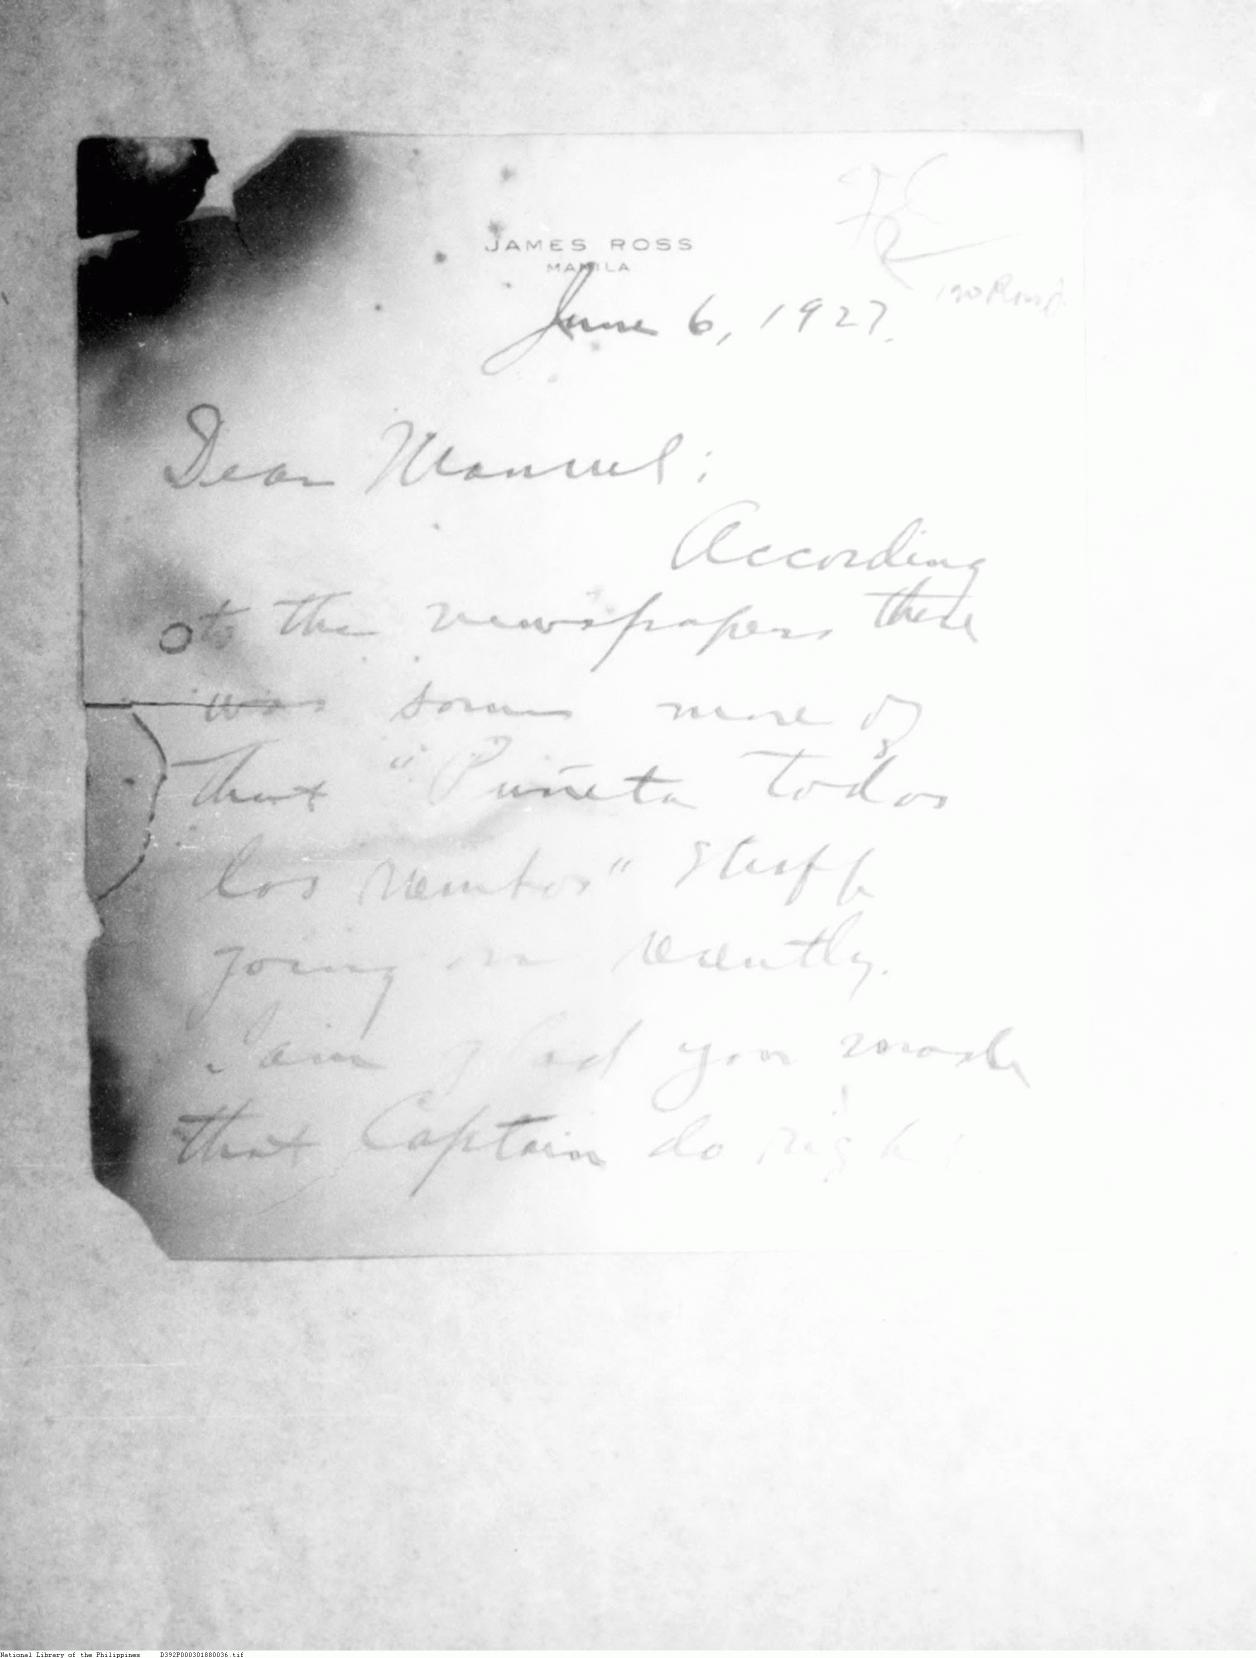 JAMES ROSS
MANILA
June 6, 1927.
Dear Manuel:
According
to the newspapers there
was some more of
that "Puñeta todos
los" stuff
going on recently.
I am glad you made
that Captain do right
National Library of the Philippines D392P000301880036.tif